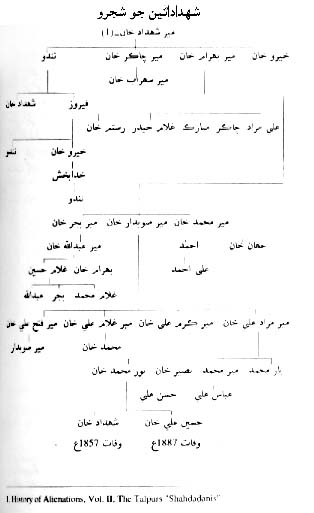 شهدادائين جو شجرو
مير شهداد خان_(1)
خيرو خان مير بهرام خان مير چاڪر خان نندو
مير سهراب خان
فيروز شهداد خان
علي مراد چاڪر مبارڪ غلام حيدر رستم خان
خيرو خان نندو
خدابخش
نندو
مير محمد خان مير صوبدار خان مير بجر خان
جهان خان احمد مير عبدالله خان
علي احمد بهرام خان غلام حسين
غلام محمد بجر عبدالله
مير مراد علي خان مير ڪرم علي خان مير غلام علي خان مير فتح علي خان
محمد خان مير صوبدار
يار محمد مير محمد نصير خان نور محمد خان
عباس علي حسن علي
حسين علي خان شهداد خان
وفات 1887ع وفات 1857ع
1. History of Alienations, Vol. II, The Talpurs "Shahdadanis"